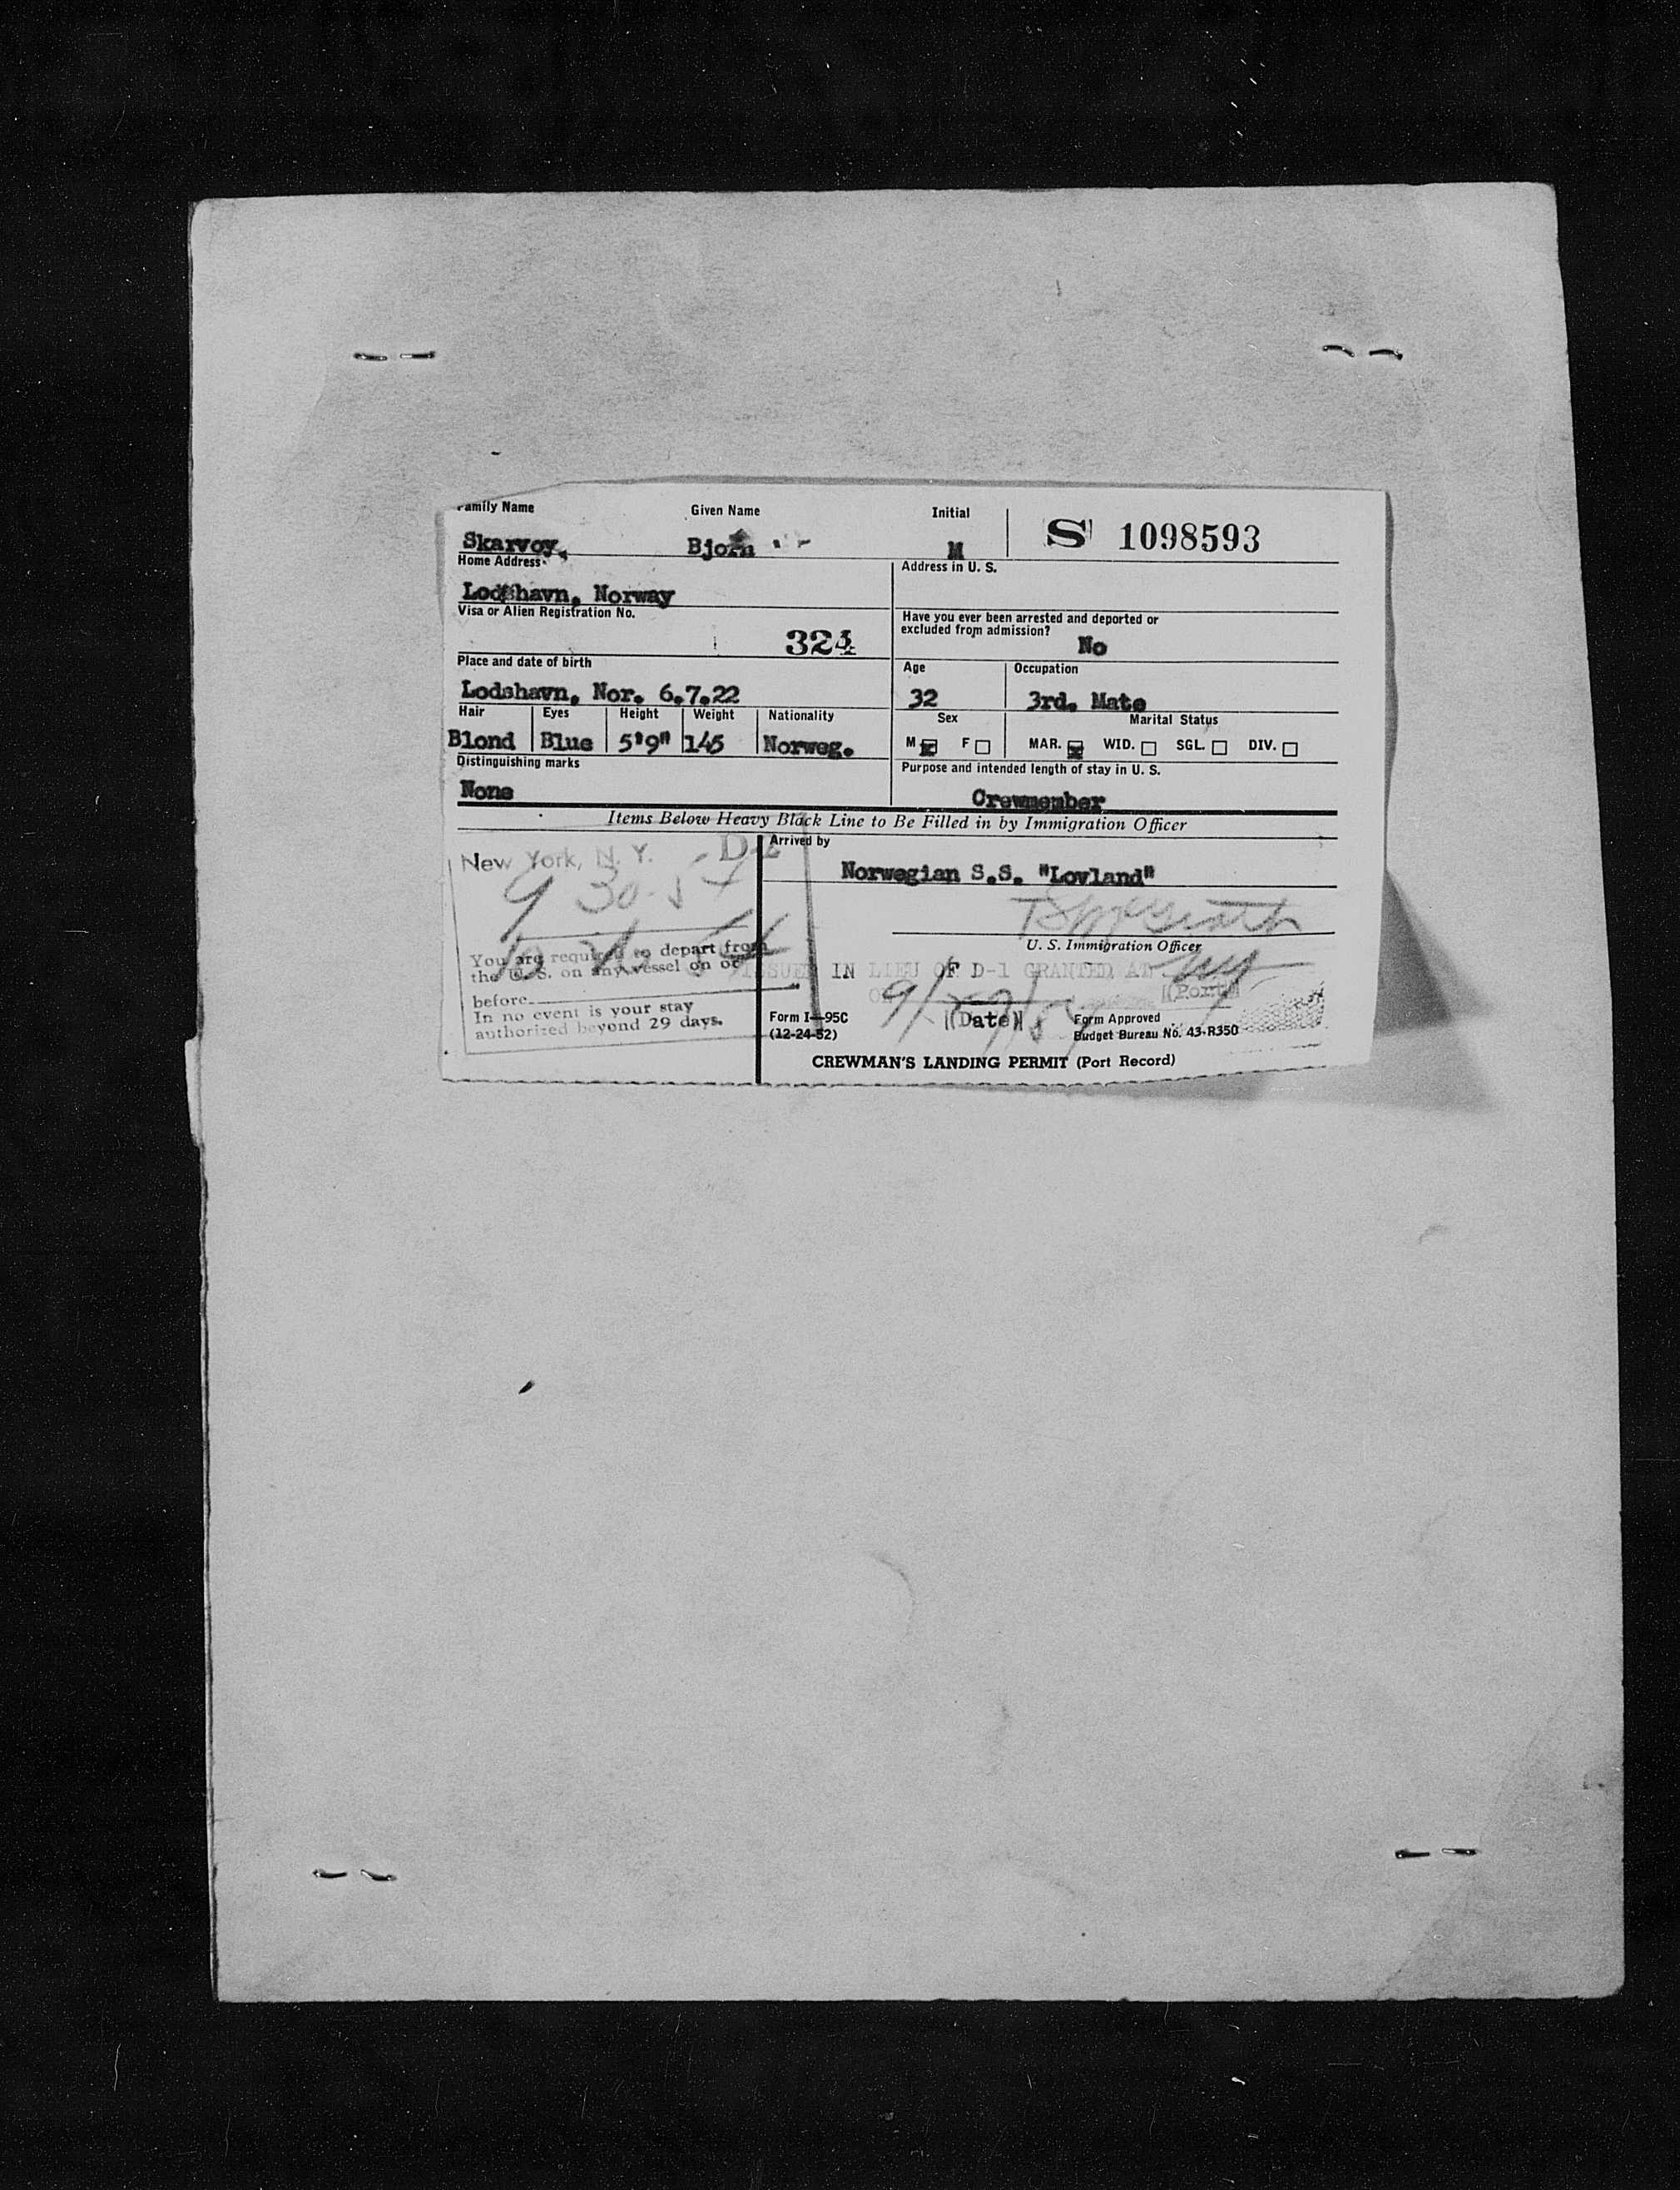 Family Name Given Name Initial S 1098593
Skarvoy, Bjorn M
Home Address Address in U. S.
Lodshavn, Norway
Visa or Alien Registration No. Have you ever been arrested and deported or
excluded from admission? No
Place and date of birth Age Occupation
Lodshavn, Nor. 6.7.22 32 3rd. Mate
Hair Eyes Height Weight Nationality Sex Marital Status
Blond Blue 5'9" 145 Norweg. M F MAR. WID. SGL. DIV.
Distinguishing marks Purpose and intended length of stay in U. S.
None Crewmember
Items Below Heavy Black Line to Be Filled in by Immigration Officer
New York, N. Y. D-2 Arrived by
Norwegian S.S. "Lovland"
9 30-54
U. S. Immigration Officer
You are required to depart from
the U. S. on any vessel on or
before
In no event is your stay
authorized beyond 29 days.
ISSUED IN LIEU OF D-1 GRANTED AT NY
ON (Date) (Port)
Form I-95C Form Approved
(12-24-52) Budget Bureau No. 43-R350
CREWMAN'S LANDING PERMIT (Port Record)